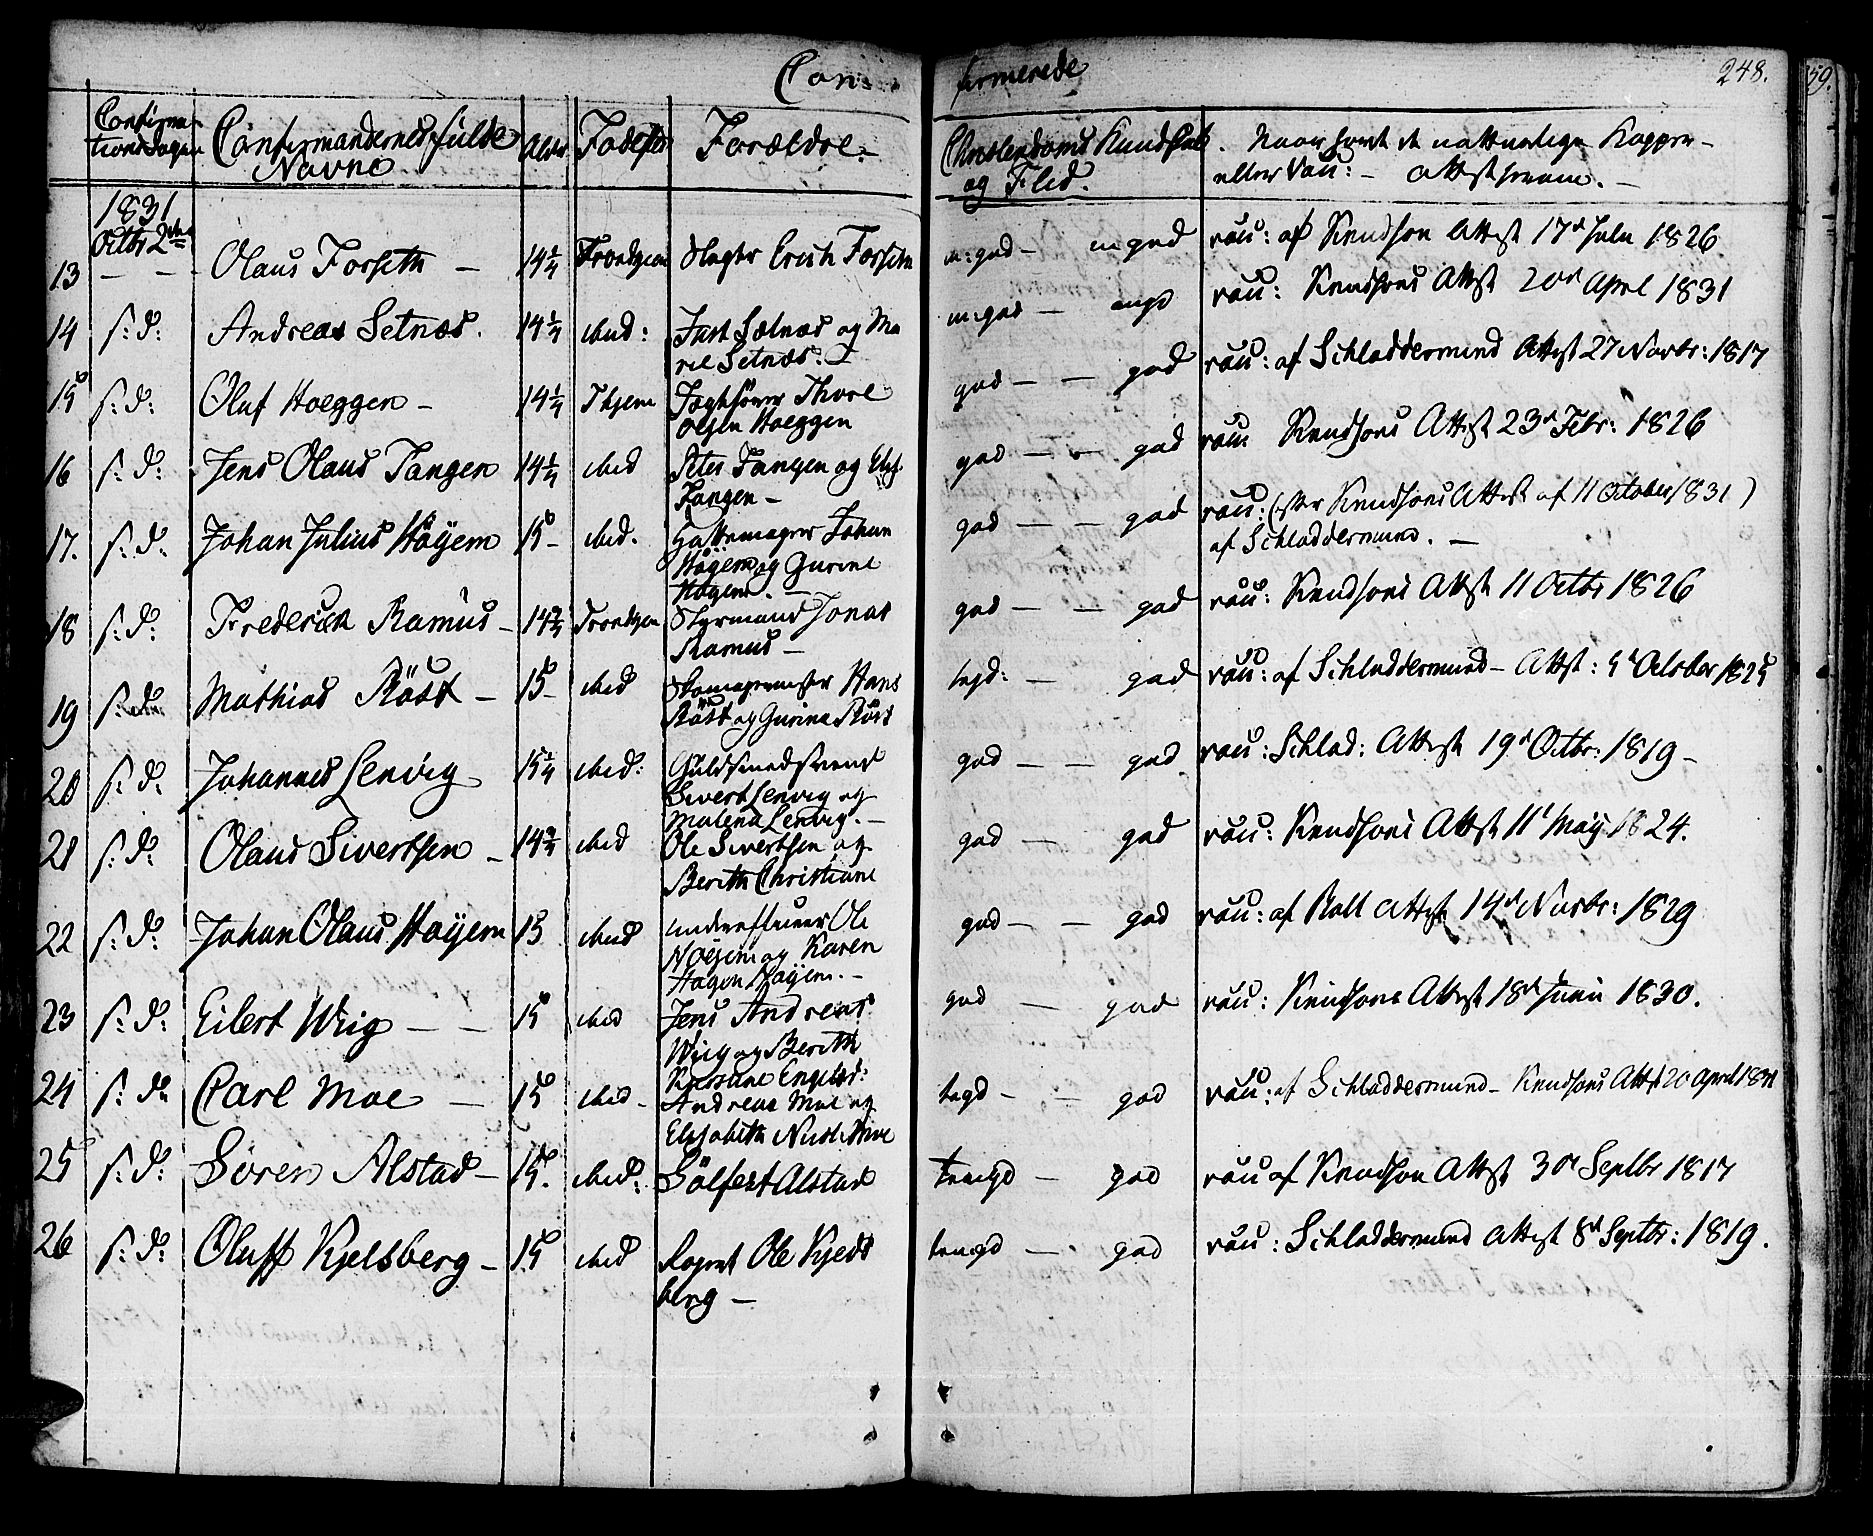 Con- firmerede 248. 59.
Confirma-
tionsdagen Confirmandernes fulde Navne Alder Fødested Forældre. Christendoms Kundskab og Flid. Naar havt de naturlige Kopper eller Vau: - Attest herom. -
1831
Octbr 2den
13 - - Olaus Forseth - 14¼ Trondhjem Slagter Erich Forseth m: god - m god vau: af Knudson Attest 17d Julii 1826
14 s: d: Andreas Setnæs. 14¼ ibid: Just Sætnæs og Ma
rel Setnæs. m: god - mgd vau: Knudsons Attst 20d April 1831
15 s: d: Oluf Hoeggen - 14¼ Thjem Thore
Hoeggen god - - god vau: af Schladdermund Attst 27 Novbr: 1817
16 s: d: Jens Olaus Tangen 14¼ ibid Peter Tangen og Els.
Tangen - god - - god vau Knudsons Attest 23d Febr: 1826
17. s: d: Johan Julius Høÿem 15 - ibid. Hattemager Johan
Høÿem og Gurine
Høÿem. - god - - god vau: (efter Knudsons Attest af 11 October 1831)
af Schladdermund. -
18 s: d: Frederich Ramus - 14¾ Trondhjem Styrmand Jonas
Ramus - god - - god vau: Knudsons Attst 11 Octbr 1826
19 s: d: Mathias Röst - 15 - ibid Skomagermester Hans
Röst og Gurina Röst tegd: god vau: af Schladdermund - Attst: 5t October 1825
20 s: d: Johannes Lenvig 15¼ ibid: Guldsmedsvend
Sivert Lenvig og
Malena Lenvig. - god - - god vau: Schlad: Attest 19d Octbr: 1819 -
21 s: d: Olaus Sivertsen - 14¾ ibid Ole Sivertsen og
Berith Christiane god - - god vau: Knudsons Attst 11t Maÿ 1824.
22 s: d: Johan Olaus Høÿem 15 ibid Ole
Høÿem og Karen
Høÿem. - god - - god vau: af Attest 14d Novbr: 1829
23 s: d: Eilert Wiig - - 15 ibid Jens Andreas
Wiig og Berith
Kjerstine Engelsd: god - god vau: Knudsons Attest 18d Junii 1830.
24 s: d: Carl Moe - 15 ibid - Andreas Moe og
Elisabeth Moe tegd - - god vau: af Schladdermund - Knudsons Attst 20 April 1831
25 s: d: Sören Alstad - 15. ibid: Sölfest Alstad temgd - god vau af Knudson Attst 30d Septbr 1817
26 s: d: Oluff Kjelsberg - 15 ibid Ole Kjels
berg - temgd - god vau: Schladdermund Attest 8d Septbr: 1819.